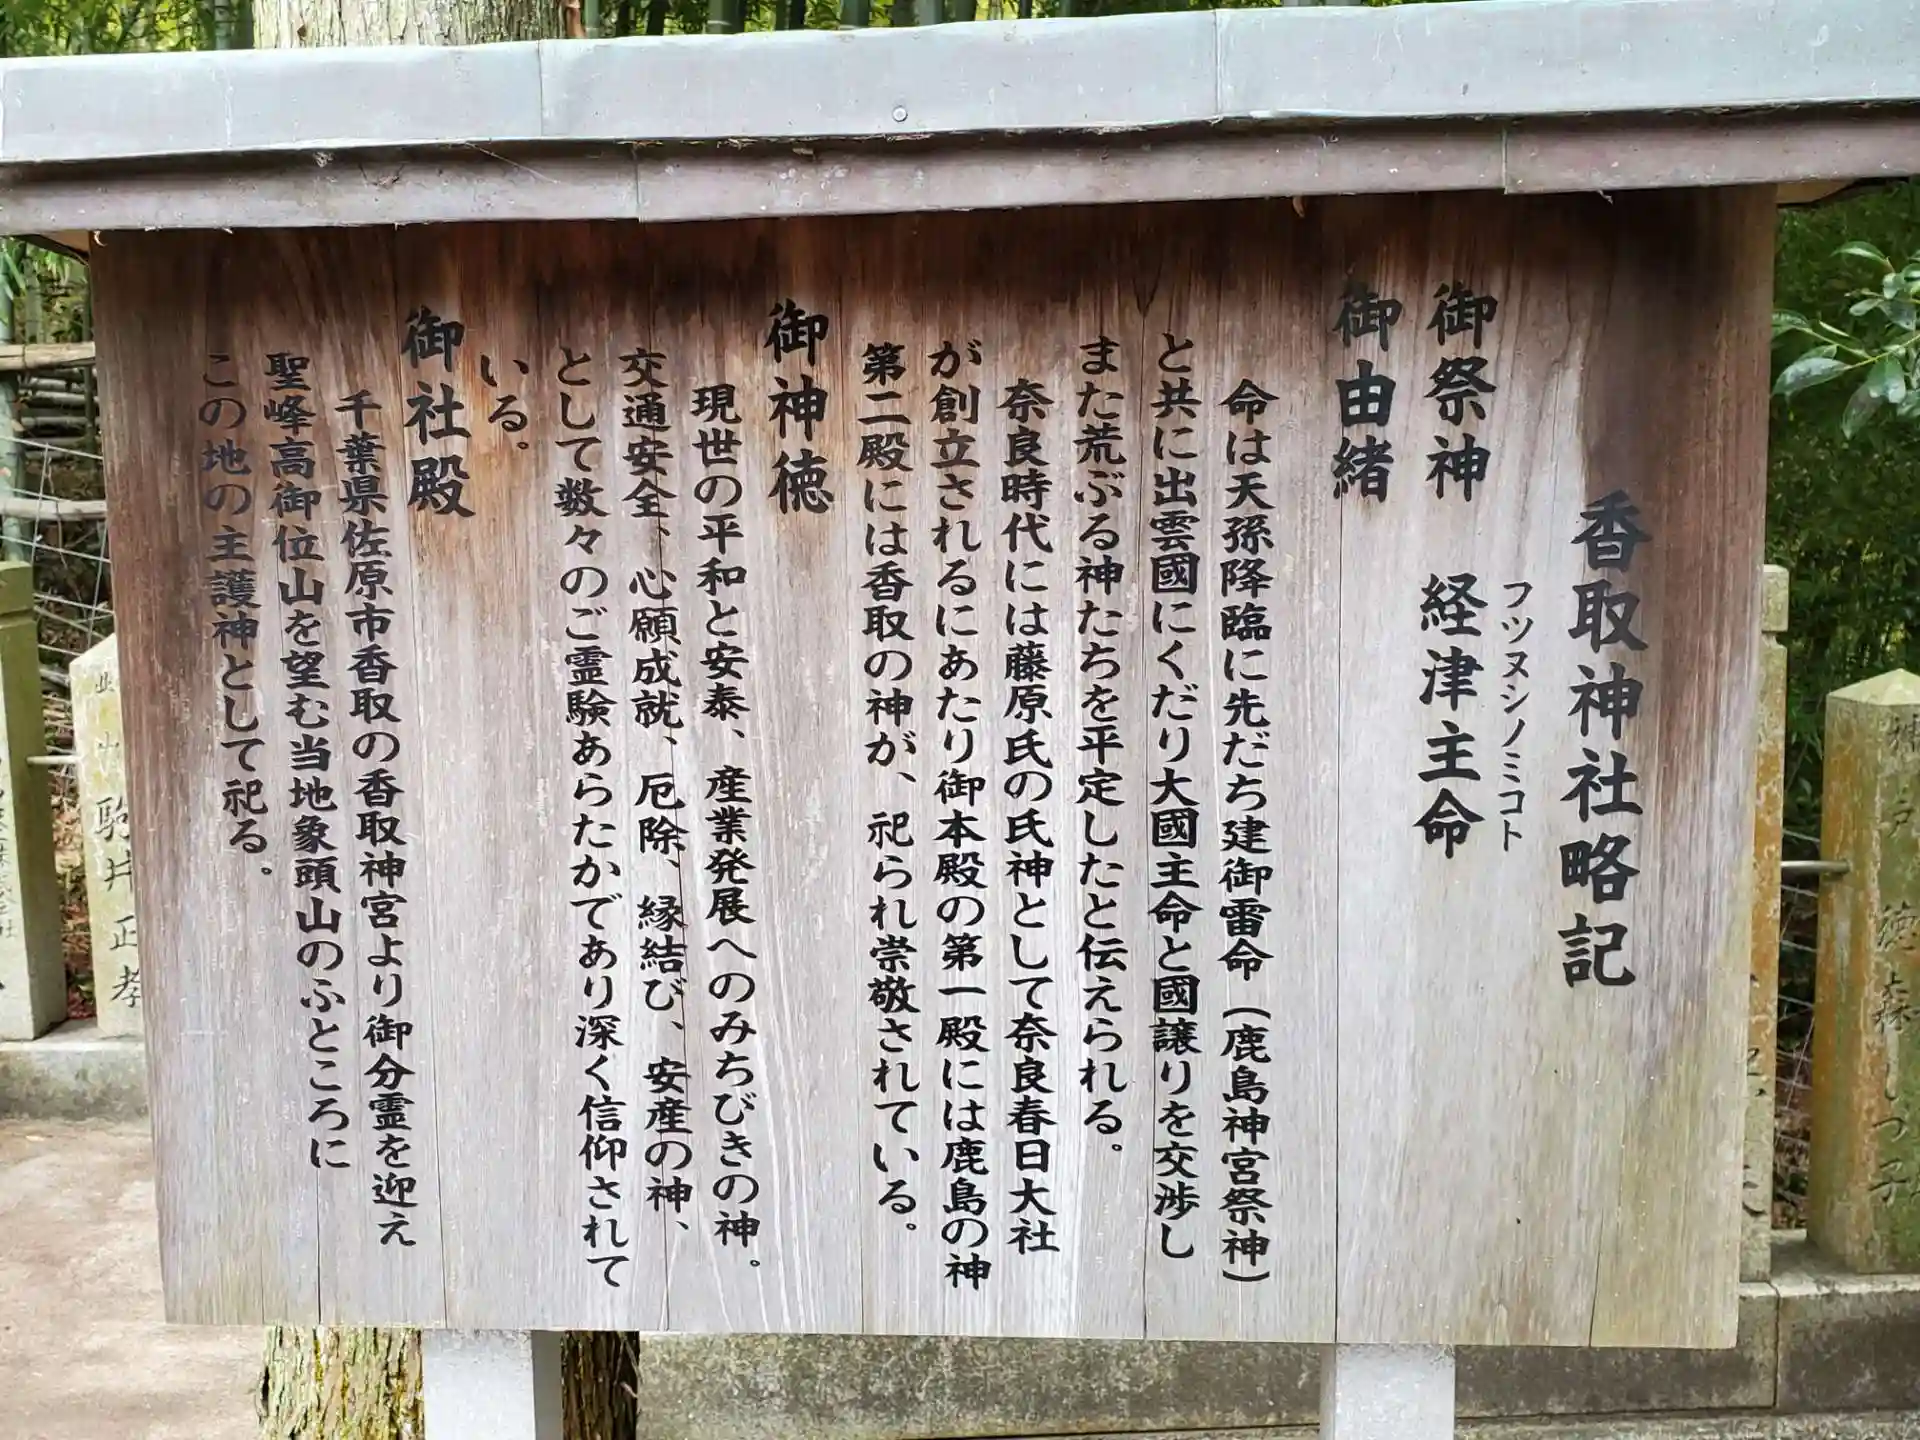 香取神社略記
御祭神 経津主命
フツヌシノミコト
御由緒
命は天孫降臨に先だち建御雷命(鹿島神宮祭神)
と共に出雲國にくだり大國主命と國譲りを交渉し
また荒ぶる神たちを平定したと伝えられる。
奈良時代には藤原氏の氏神として奈良春日大社
が創立されるにあたり御本殿の第一殿には鹿島の神
第二殿には香取の神が、祀られ崇敬されている。
御神徳
現世の平和と安泰、産業発展へのみちびきの神。
交通安全、心願成就、厄除、縁結び、安産の神、
として数々のご霊験あらたかであり深く信仰されて
いる。
御社殿
千葉県佐原市香取の香取神宮より御分霊を迎え
聖峰高御位山を望む当地象頭山のふところに
この地の主護神として祀る。
神戸 徳森しづ子
駒井正孝